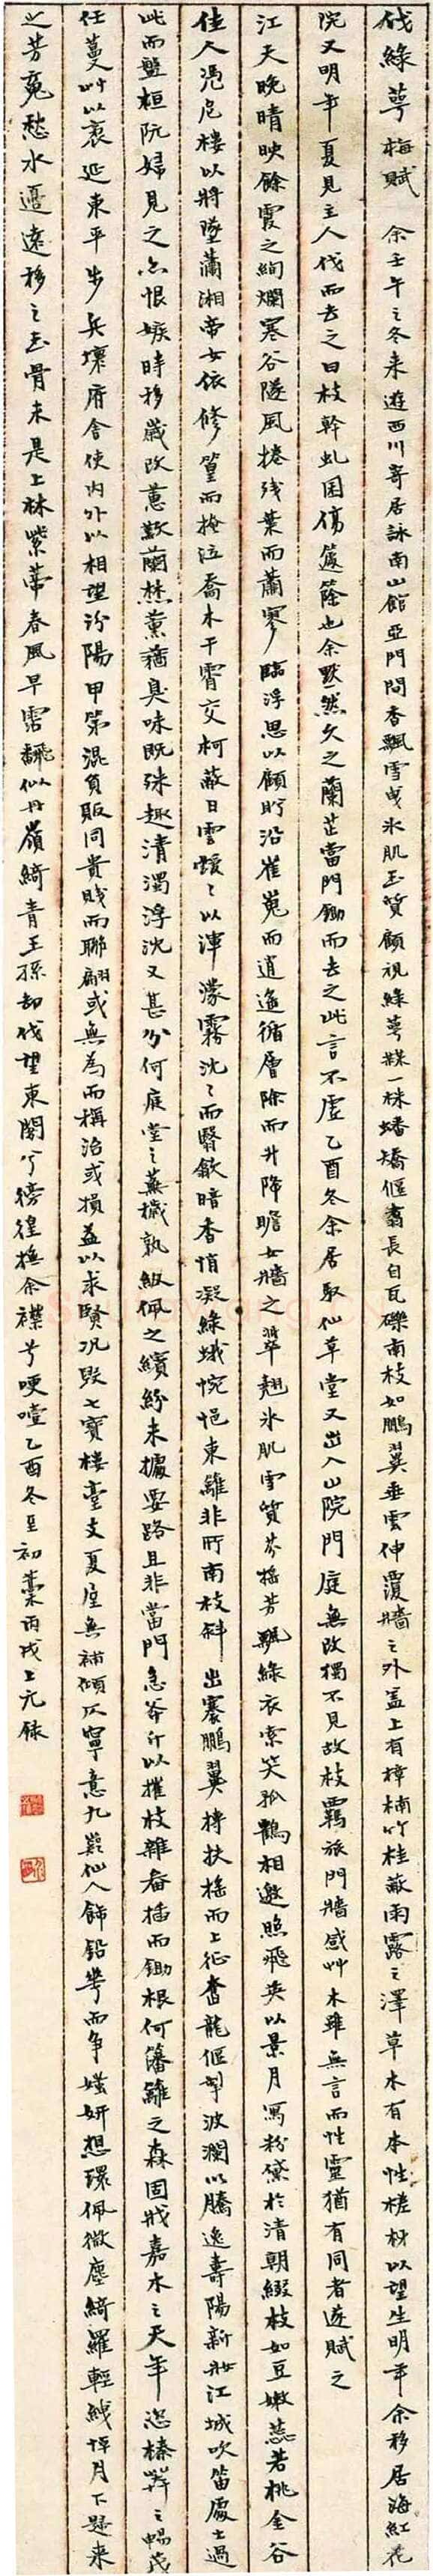 伐綠萼梅賦 余壬午之冬來遊西川寄居詠南山館亞門間香飄雪曳氷肌玉質顧視綠萼楳一株蟠矯偃蹇長自瓦礫南枝如鵬翼垂雲伸覆牆之外盖上有樟楠竹桂蔽雨露之澤草木有本性槎枒以望生明年余移居海紅花
院又明年夏見主人伐而去之曰枝幹虬困傷籧篨也余默然久之蘭芷當門鋤而去之此言不虛乙酉冬余居取仙草堂又出入山院門庭無改獨不見故枝羈旅門牆感艸木雖無言而性靈猶有同者遂賦之
江天晚晴映餘霞之絢爛寒谷隧風捲殘葉而蕭寥臨浮思以顧盻沿崔嵬而逍遙循層除而升降瞻女牆之翠翹氷肌雪質芬搖芳飄綠衣索笑孤鶴相邀照飛英以景月寫粉黛於清朝綴枝如豆嫩蕊若桃金谷
佳人憑危樓以將墜瀟湘帝女依修篁而掩泣喬木干霄交柯蔽日雲靉々以渾濛霧沈々而翳歛暗香悄凝綠蛾惋悒東籬非所南枝斜出騫鵬翼摶扶搖而上征奮龍偃掣波瀾以騰逸壽陽新妝江城吹笛處士過
此而盤桓阮婦見之亦恨嫉時移歲改蕙歎蘭愁薰蕕臭味既殊趣清濁浮沈又甚分何庭堂之蕪穢孰紉佩之繽紛未據要路且非當門急斧斤以摧枝雜畚插而鋤根何籓籬之森固戕嘉木之天年恣榛莽之暢茂
任蔓艸以袤延東平步兵壞府舍使內外以相望汾陽甲第混負販同貴賤而聯翩或無為而稱治或損益以求賢況毀七寶樓臺支夏屋無補傾仄寧意九嶷仙人飾鉛華而爭媸妍想環佩微塵綺羅輕綫怦月下疑來
之芳魂愁水邊遠移之玉骨未是上林紫蒂春風早露飜似丹嶺綺青王孫却伐望東閣兮徬徨撫余襟兮哽噎乙酉冬至初稾丙戌上元錄